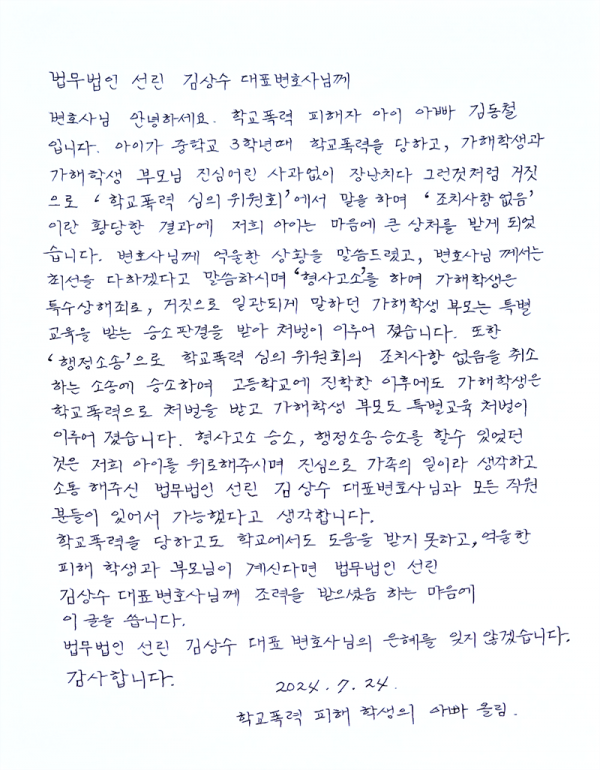 법무법인 선린 김상수 대표변호사님께
변호사님 안녕하세요. 학교폭력 피해자 아이 아빠 김동철
입니다. 아이가 중학교 3학년때 학교폭력을 당하고, 가해학생과
가해학생 부모님 진심어린 사과없이 장난치다 그런것처럼 거짓
으로 '학교폭력 심의 위원회'에서 말을 하며 '조치사항 없음'
이란 황당한 결과에 저희 아이는 마음에 큰 상처를 받게 되었
습니다. 변호사님께 억울한 상황을 말씀드렸고, 변호사님 께서는
최선을 다하겠다고 말씀하시며 '형사고소'를 하여 가해학생은
특수상해죄로, 거짓으로 일관되게 말하던 가해학생 부모는 특별
교육을 받는 승소판결을 받아 처벌이 이루어 졌습니다. 또한
'행정소송'으로 학교폭력 심의 위원회의 조치사항 없음을 취소
하는 소송에 승소하여 고등학교에 진학한 이후에도 가해학생은
학교폭력으로 처벌을 받고 가해학생 부모도 특별교육 처벌이
이루어 졌습니다. 형사고소 승소, 행정소송 승소를 할수 있었던
것은 저희 아이를 위로해주시며 진심으로 가족의 일이라 생각하고
소통 해주신 법무법인 선린 김상수 대표변호사님과 모든 직원
분들이 있어서 가능했다고 생각합니다.
학교폭력을 당하고도 학교에서도 도움을 받지 못하고, 억울한
피해 학생과 부모님이 계신다면 법무법인 선린
김상수 대표변호사님께 조력을 받으셨음 하는 마음에
이 글을 씁니다.
법무법인 선린 김상수 대표 변호사님의 은혜를 잊지 않겠습니다.
감사합니다.
2024. 7. 24.
학교폭력 피해 학생의 아빠 올림.